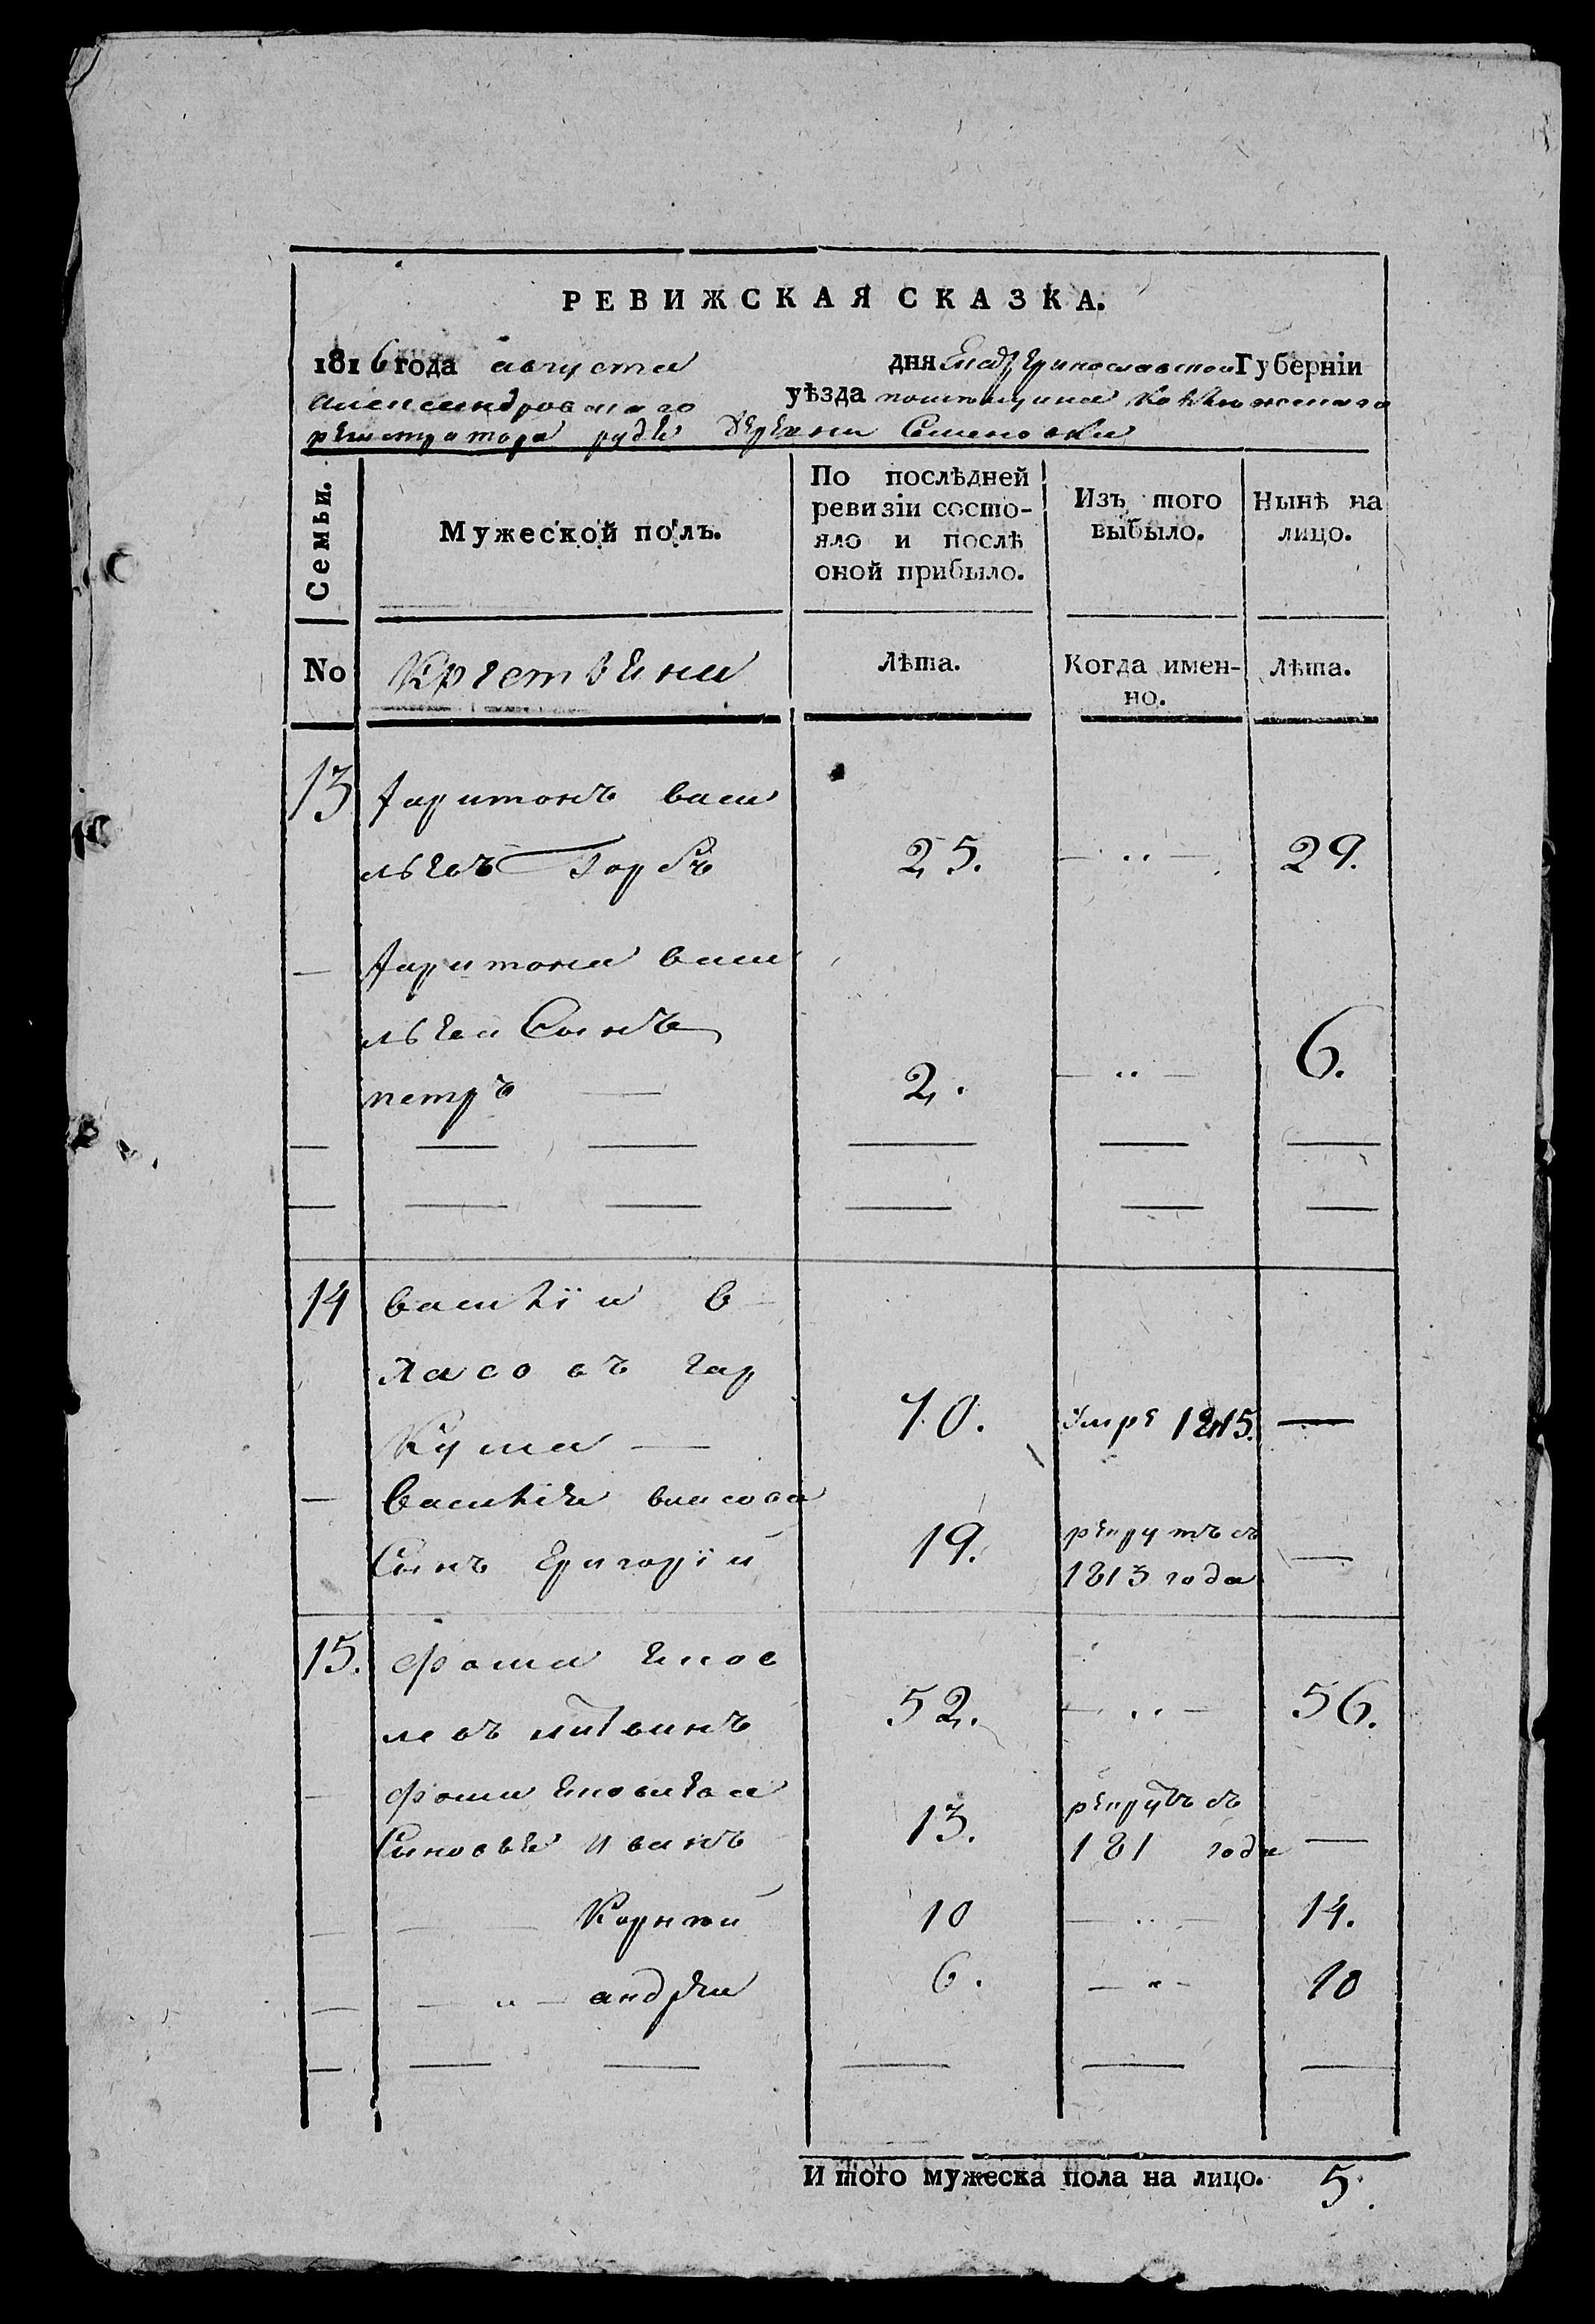 РЕВИЖСКАЯ СКАЗКА.
1816 года августа дня Екатеринославской Губерніи
Александровскаго уѣзда помѣщика Коллежскаго
регистратора рудѣ Деревни Семеновки
Семьи. Мужеской полъ. По послѣдней ревизіи состояло и послѣ оной прибыло. Изъ того выбыло. Нынѣ на лицо.
No Крестьяни лѣта. Когда именно. лѣта.
13 Харитонъ васи
льевъ Горбъ 25. — „ — 29.
— Харитона васи
льева Сынъ
петръ — 2. — „ — 6.
14 василіи в
ласовъ гар
куша — 70. Умре 1815. —
— василія власова
Сынъ Григорій 19. рекрутъ съ 1813 года —
15. фома
литвинъ 52. — „ — 56.
— фоми
Синовья иванъ 13. рекрутъ съ 181 года —
— — — Корнѣй 10 — „ — 14.
— — „ — андреи 6. — „ — 10
И того мужеска пола на лицо. 5.